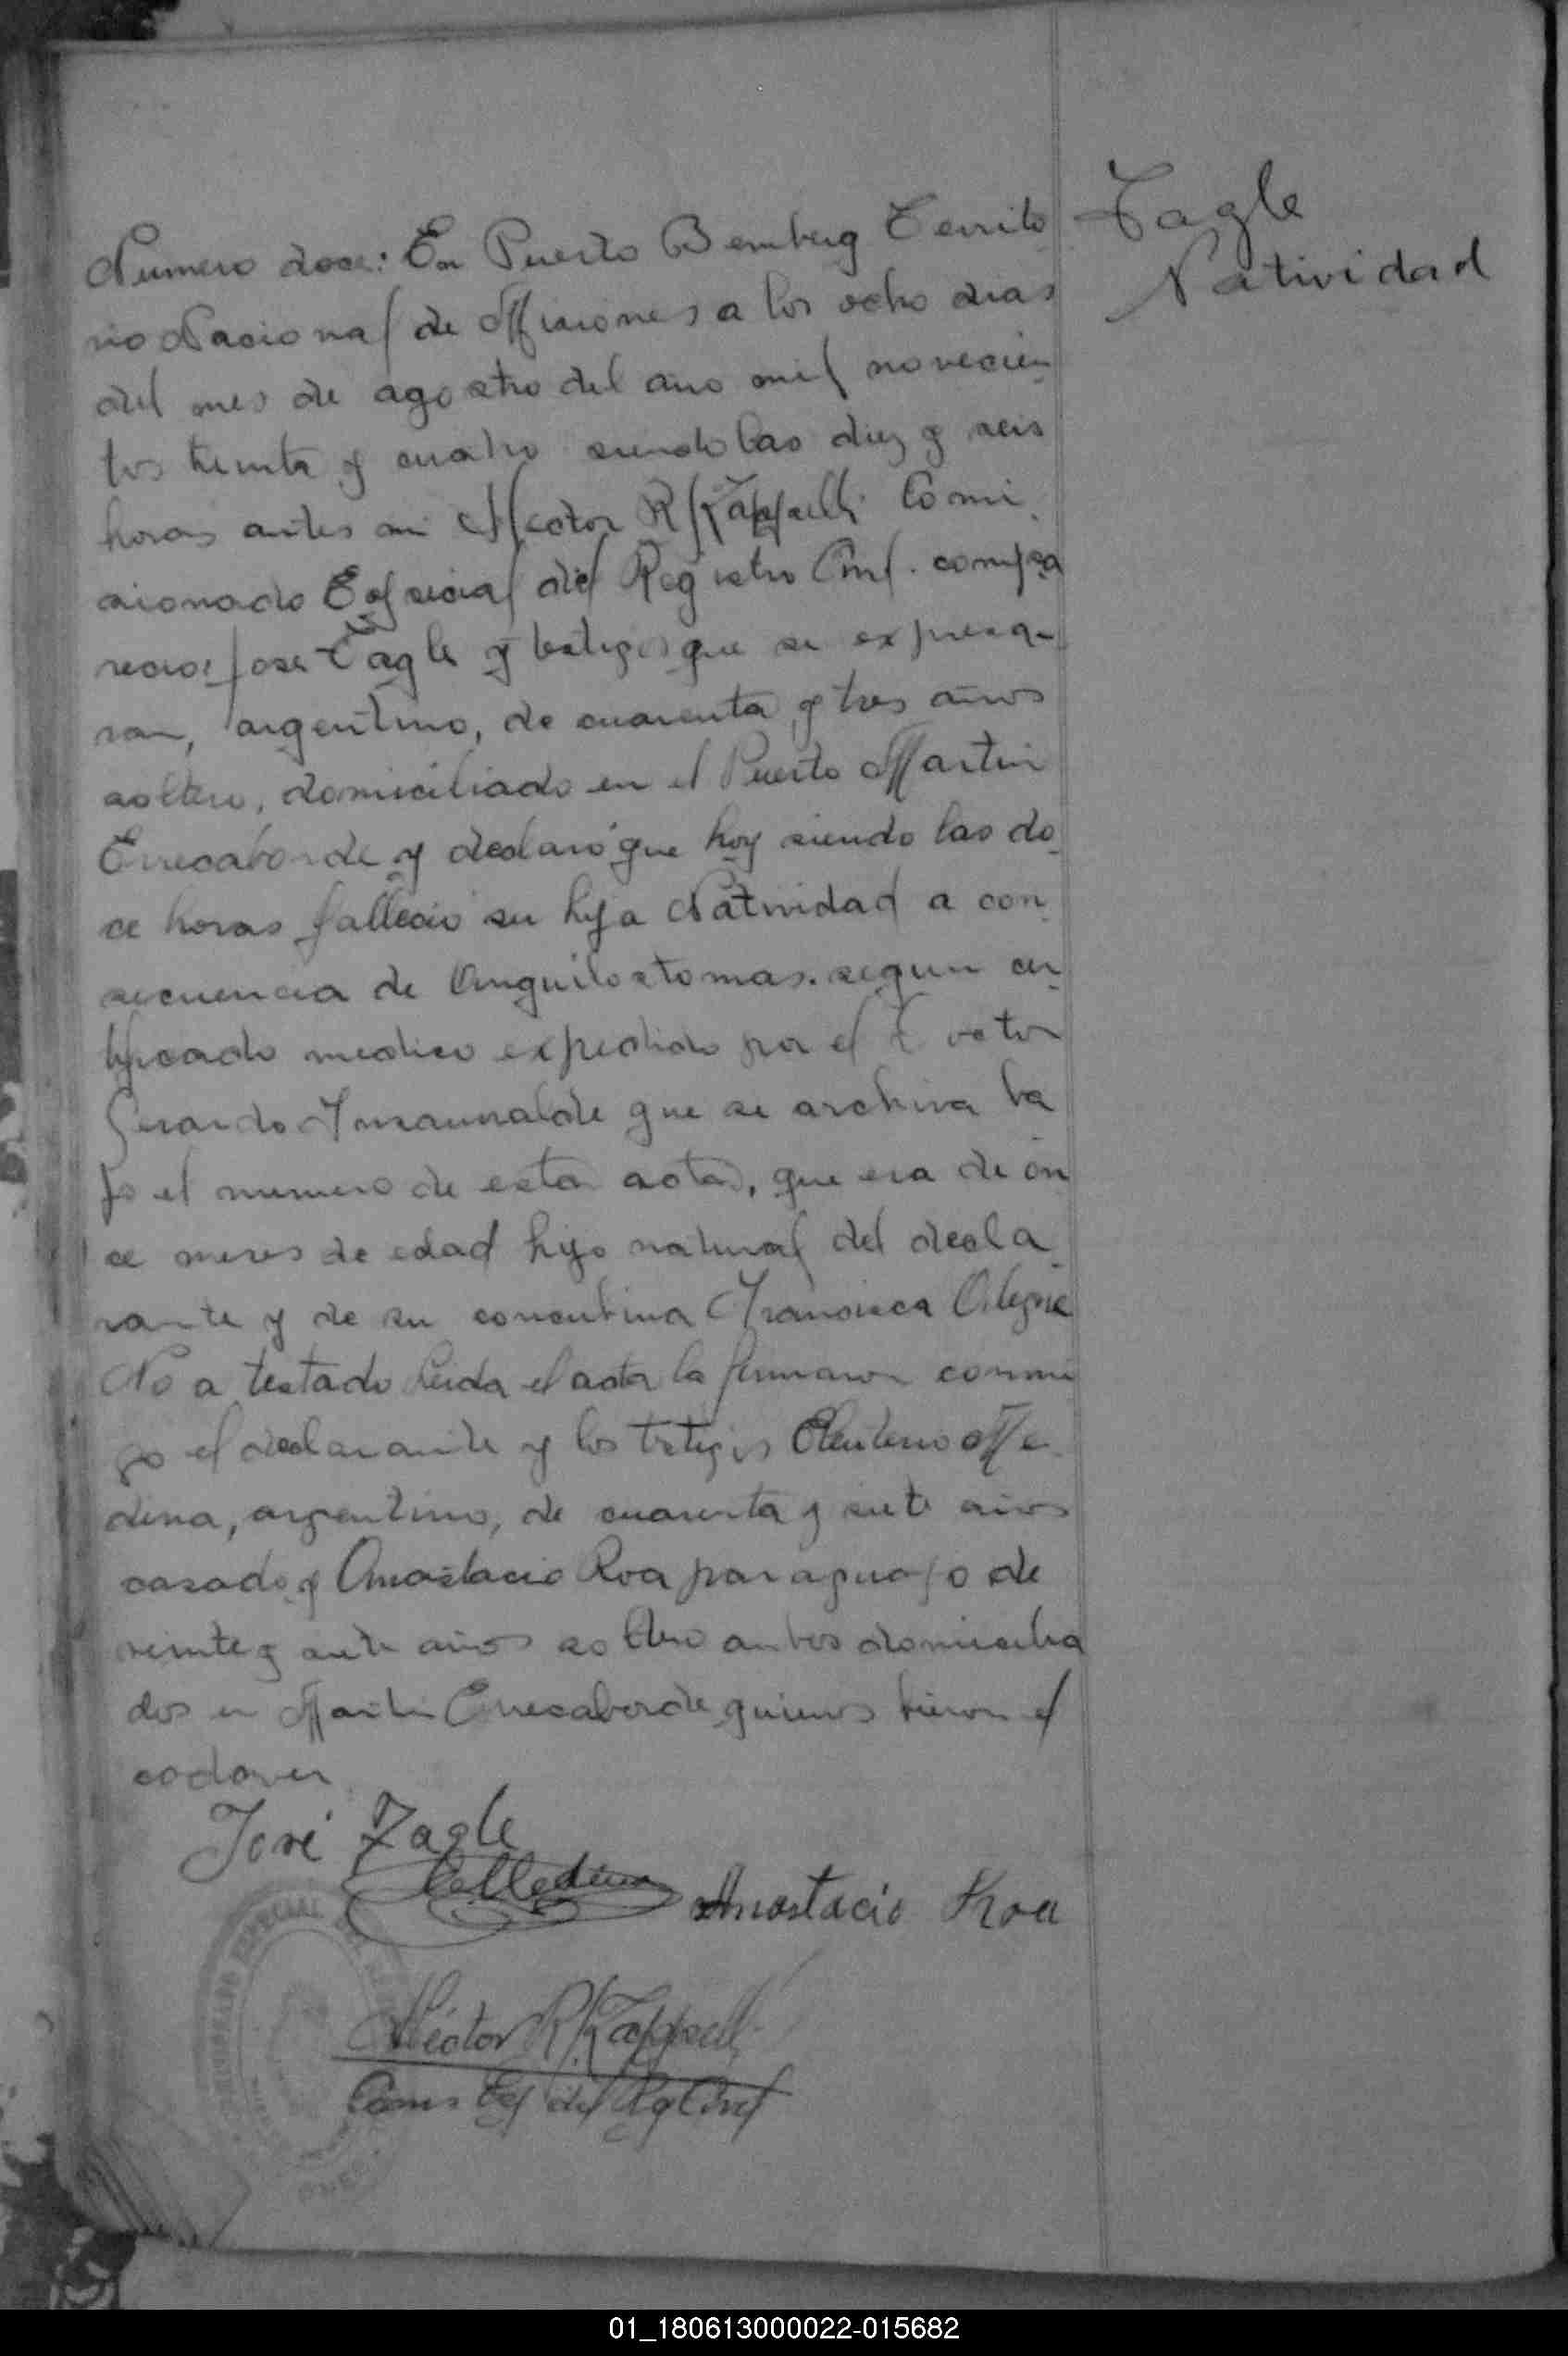 Tagle
Natividad
Numero doce: En Puerto Bemberg Territo
rio Nacional de Misiones a los ocho dias
del mes de agostro del año mil novecien
tos treinta y cuatro siendo las diez y seis
horas antes mi Hector R Kappelli Comi
sionado Especial del Registro Civil. compa
recio: Jose Tagle y testigos que se expresa
ran, argentino, de cuarenta y tres años
soltero, domiciliado en el Puerto Martin
Errecaborde y declaró que hoy siendo las do
ce horas fallecio su hija Natividad a con
secuencia de Anguilostomas. segun cer
tificado medico expedido por el Doctor
Gerardo Insaurralde que se archiva ba
jo el numero de esta acta, que era de on
ce meses de edad hijo natural del decla
rante y de su concubina Francisca
No a testado Leida el acta la firmaron conmi
go el declarante y los tetigos Eleuterio Me
dina, argentino, de cuarenta y siete años
casado y Anastacio Roa paraguayo de
veinte y siete años soltero ambos domicilia
dos en Martin Errecaborde quienes vieron el
cadaver
José Tagle
Anastacio Roa
Héctor R Kappelli
Comis Esp del Rg Civil
COMISIONADO ESPECIAL
01_180613000022-015682